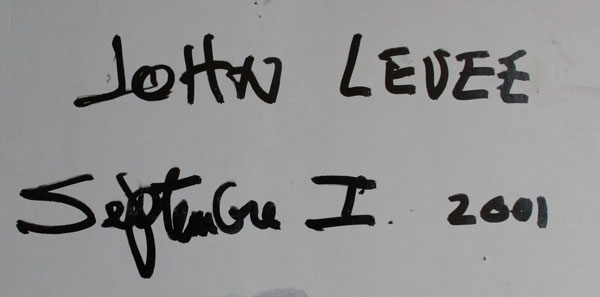 JOHN LEVEE
Septembre I. 2001